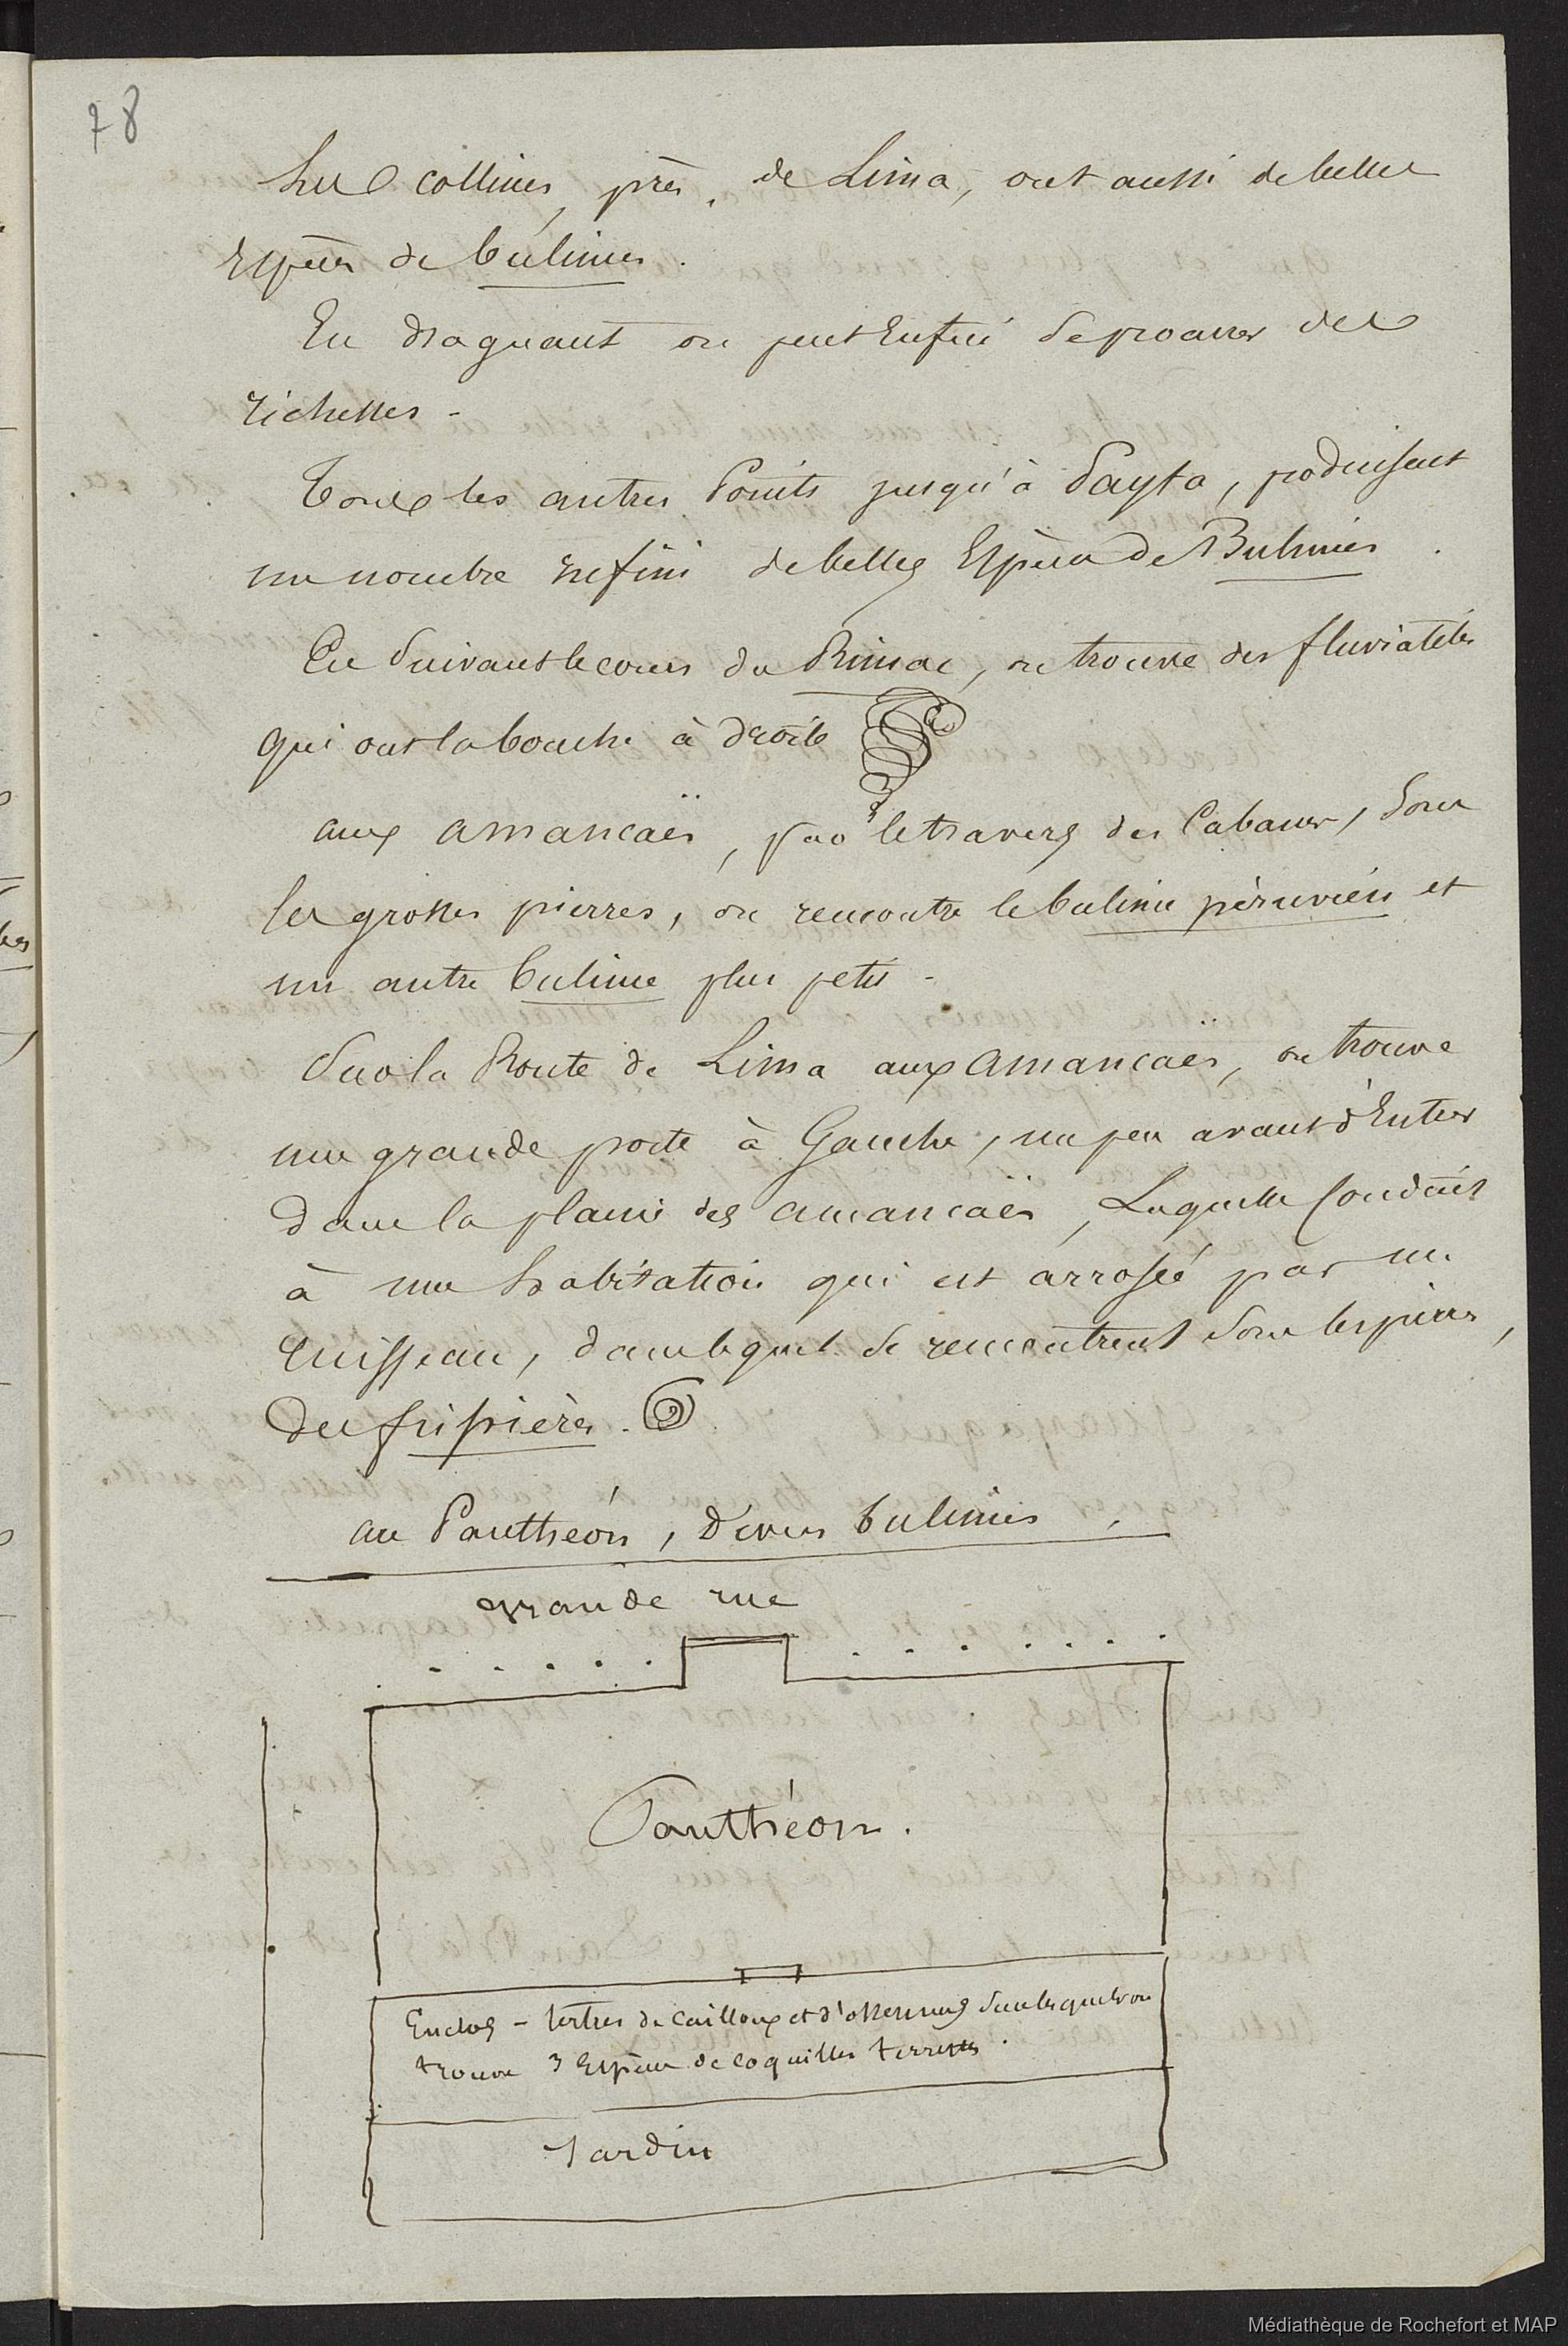 78
Les collines, près, de Lima, ont aussi de belles
Espèces de bulimes.
En draguant on peut Enfin se procurer des
richesses -
Tous les autres Points jusqu'à Payta, produisent
un nombre infini de belles Espèces de Bulimes.
En suivant le cours du Rimac, on trouve des fluviatiles
qui ont la bouche à droite
aux amancaës, par le travers des Cabanes, sous
les grosses pierres, on rencontre le bulime péruvien et
un autre bulime plus petit -
Sur la Route de Lima aux amancaës, on trouve
une grande porte à Gauche, un peu avant d'Entrer
dans la plaine des amancaës, Laquelle Conduit
à une habitation qui est arrosée par un
ruisseau, dans lequel se rencontrent sous les pierres,
des fripières.
au Panthéon, divers bulimes.
grande rue
Panthéon.
Enclos - tertres de Cailloux et d'ossemens dans lesquels on
trouve 3 Espèces de coquilles terrestres.
Jardin
Médiathèque de Rochefort et MAP